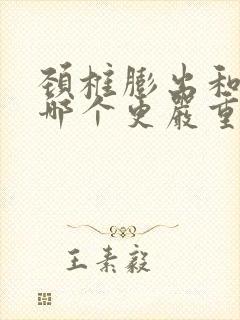 颈椎膨出和
哪个更严重
王素毅